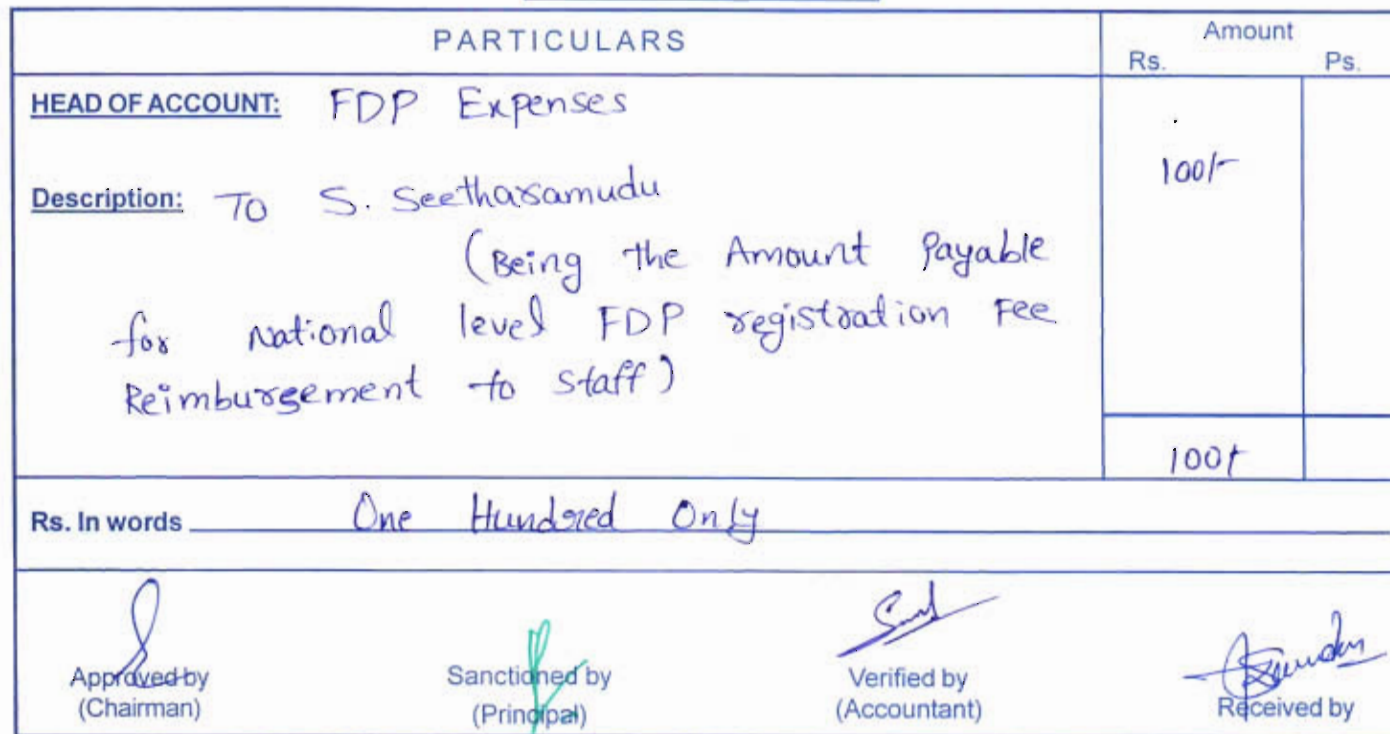 PARTICULARS
Amount
Rs. Ps.
HEAD OF ACCOUNT: FDP Expenses
100/-
Description: To S. Seetharamudu
(Being the Amount Payable
for National level FDP registration Fee
Reimbursement to staff)
100/-
Rs. In words One Hundred Only
Approved by Sanctioned by Verified by Received by
(Chairman) (Principal) (Accountant)